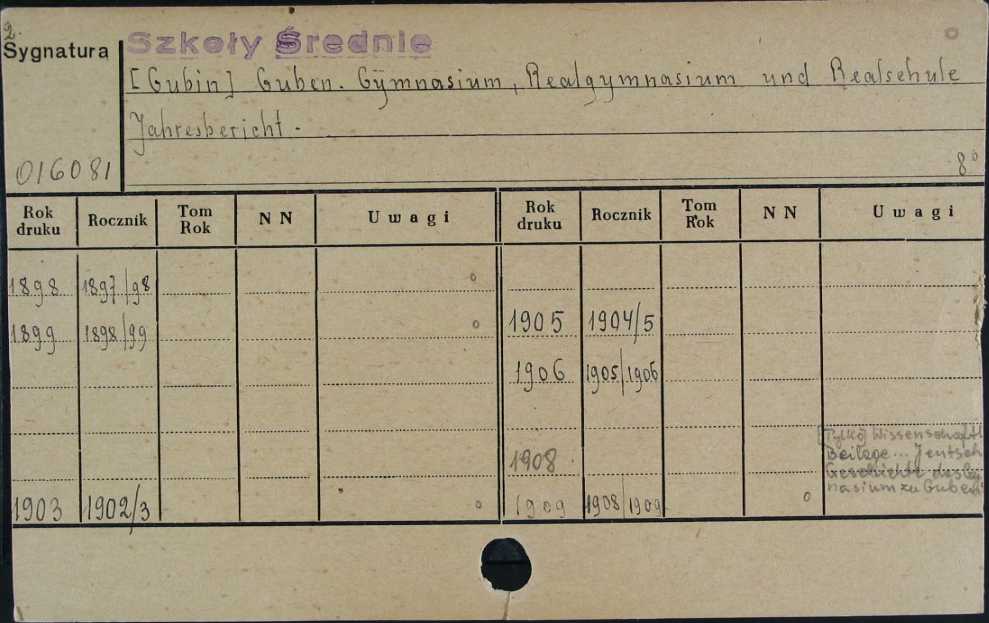 2.
Sygnatura
Szkoły Średnie
[Gubin] Guben. Gymnasium, Realgymnasium und Realschule
Jahresbericht.
016081
8°
Rok druku Rocznik Tom Rok NN Uwagi Rok druku Rocznik Tom Rok NN Uwagi
1898 1897/98
1899 1898/99
1903 1902/3
1905 1904/5
1906 1905/1906
1908 [Tylko] Wissenschaftl
Beilage... Jentsch
Geschichte des Gym
nasium zu Guben
1909 1908/1909